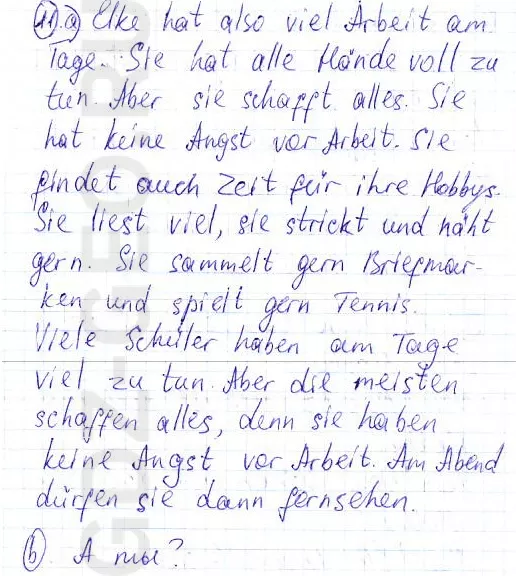 11. a) Elke hat also viel Arbeit am
Tage. Sie hat alle Hände voll zu
tun. Aber sie schafft alles. Sie
hat keine Angst vor Arbeit. Sie
findet auch Zeit für ihre Hobbys.
Sie liest viel, sie strickt und näht
gern. Sie sammelt gern Briefmar-
ken und spielt gern Tennis.
Viele Schüler haben am Tage
viel zu tun. Aber die meisten
schaffen alles, denn sie haben
keine Angst vor Arbeit. Am Abend
dürfen sie dann fernsehen.
b) А ты?
GDZ-GEO.RU